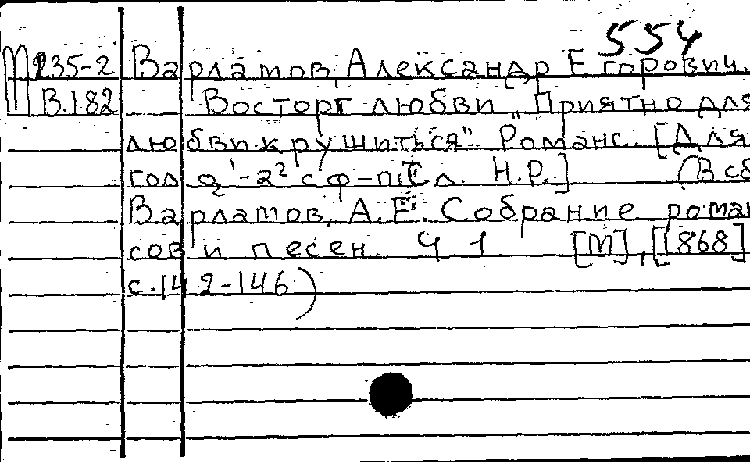 554
М235-2 Варламов, Александр Егорович.
В.182 Восторг любви „Приятно для
любви крушиться". Романс. [Для
гол. a¹-a² с ф-п. Сл. Н.Р.] (В сб
Варламов, А.Е. Собрание роман
сов и песен. Ч 1 [М], [1868]
с.142-146)